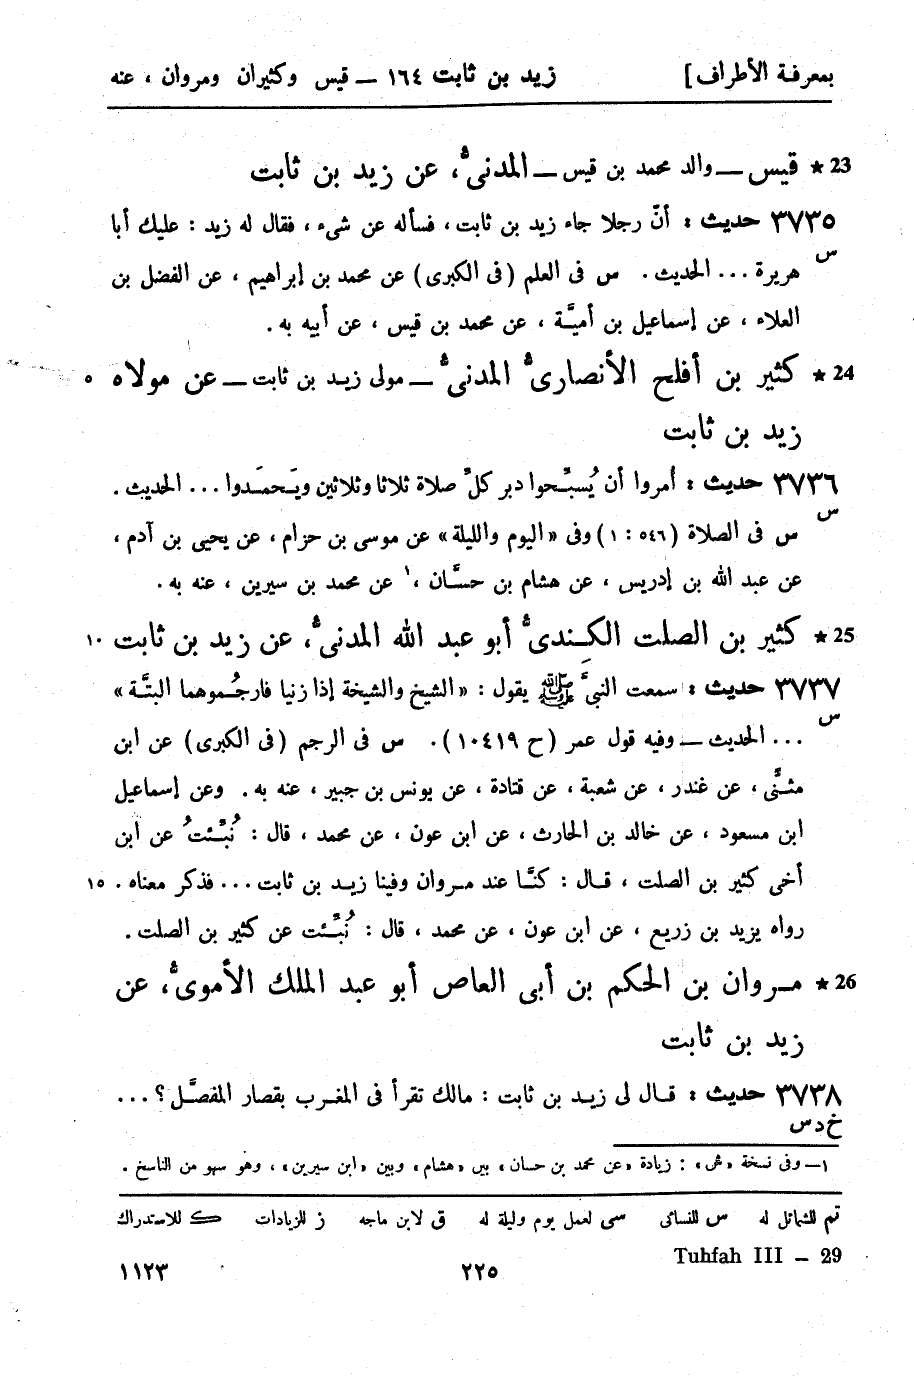 بمعرفة الأطراف] زيد بن ثابت ١٦٤ — قيس وكثيران ومروان ، عنه
23 ★ قيس — والد محمد بن قيس — المدنىُّ، عن زيد بن ثابت
٣٧٣٥ حديث : أنّ رجلا جاء زيد بن ثابت ، فسأله عن شىء ، فقال له زيد : عليك أبا
س
هريرة ... الحديث . س فى العلم (فى الكبرى) عن محمد بن إبراهيم ، عن الفضل بن
العلاء ، عن إسماعيل بن أميَّة ، عن محمد بن قيس ، عن أبيه به .
24 ★ كثير بن أفلح الأنصارىُّ المدنىُّ — مولى زيد بن ثابت — عن مولاه ٥
زيد بن ثابت
٣٧٣٦ حديث : أمروا أن يُسبِّحوا دبر كلّ صلاة ثلاثا وثلاثين ويَحمَدوا ... الحديث .
س
س فى الصلاة (٥٤٦ : ١) وفى «اليوم والليلة» عن موسى بن حزام ، عن يحيى بن آدم ،
عن عبد الله بن إدريس ، عن هشام بن حسَّان ،١ عن محمد بن سيرين ، عنه به .
25 ★ كثير بن الصلت الكَِندىُّ أبو عبد الله المدنىُّ، عن زيد بن ثابت ١٠
٣٧٣٧ حديث : سمعت النبىَّ ﷺ يقول : «الشيخ والشيخة إذا زنيا فارجُموهما البتَّة»
س
... الحديث — وفيه قول عمر (ح ١٠٤١٩) . س فى الرجم (فى الكبرى) عن ابن
مثنَّى ، عن غندر ، عن شعبة ، عن قتادة ، عن يونس بن جبير ، عنه به . وعن إسماعيل
ابن مسعود ، عن خالد بن الحارث ، عن ابن عون ، عن محمد ، قال : نُبِّئتُ عن ابن
أخى كثير بن الصلت ، قال : كنَّا عند مروان وفينا زيد بن ثابت ... فذكر معناه . ١٥
رواه يزيد بن زريع ، عن ابن عون ، عن محمد ، قال : نُبِّئت عن كثير بن الصلت .
26 ★ مروان بن الحكم بن أبى العاص أبو عبد الملك الأموىُّ، عن
زيد بن ثابت
٣٧٣٨ حديث : قال لى زيد بن ثابت : مالك تقرأ فى المغرب بقصار المفصَّل ؟ ...
خ د س
١ — وفى نسخة : زيادة «عن محمد بن حسان» بين «هشام» وبين «ابن سيرين» ، وهو سهو من الناسخ .
تم للشمائل له س للنسائى سى لعمل يوم وليلة له ق لابن ماجه ز للزيادات ك للاستدراك
Tuhfah III – 29
٢٢٥ ١١٢٣